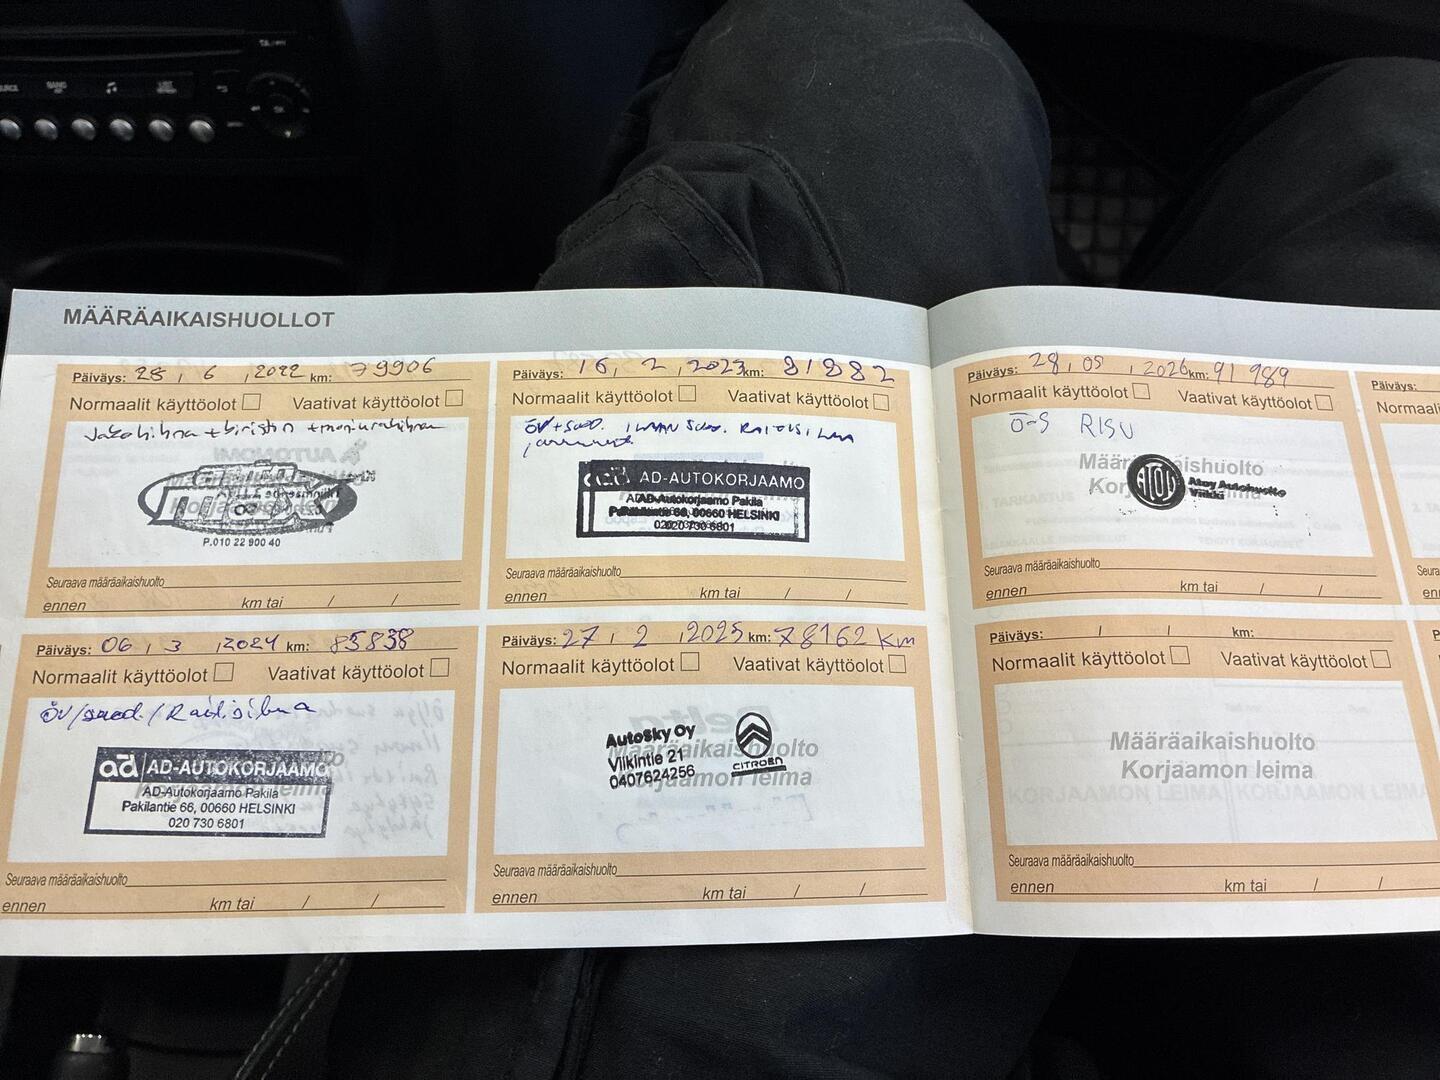 MÄÄRÄAIKAISHUOLLOT
Päiväys: 28 , 6 , 2022 km: 79906
Normaalit käyttöolot Vaativat käyttöolot
P.010 22 900 40
Seuraava määräaikaishuolto
ennen km tai / /
Päiväys: 16, 2, 2023 km: 81882
Normaalit käyttöolot Vaativat käyttöolot
ÖV+SUOD. ILMAN SUO. RAITISILMA
ad AD-AUTOKORJAAMO
AD-Autokorjaamo Pakila
Pakilantie 66, 00660 HELSINKI
020 730 6801
Seuraava määräaikaishuolto
ennen km tai / /
Päiväys: 06, 3, 2024 km: 85838
Normaalit käyttöolot Vaativat käyttöolot
ÖV/suod./Raitisilma
ad AD-AUTOKORJAAMO
AD-Autokorjaamo Pakila
Pakilantie 66, 00660 HELSINKI
020 730 6801
Seuraava määräaikaishuolto
ennen km tai / /
Päiväys: 27, 2, 2025 km: 78162 km
Normaalit käyttöolot Vaativat käyttöolot
Määräaikaishuolto
Korjaamon leima
AutoSky Oy
Viikintie 21
0407624256
CITROËN
Seuraava määräaikaishuolto
ennen km tai / /
Päiväys: 28, 05, 2026 km: 91 989
Normaalit käyttöolot Vaativat käyttöolot
Ö-S RISU
Määräaikaishuolto
Korjaamon leima
ATOY
Atoy Autohuolto
Viikki
Seuraava määräaikaishuolto
ennen km tai / /
Päiväys: / / km:
Normaalit käyttöolot Vaativat käyttöolot
Määräaikaishuolto
Korjaamon leima
Seuraava määräaikaishuolto
ennen km tai / /
Päiväys: